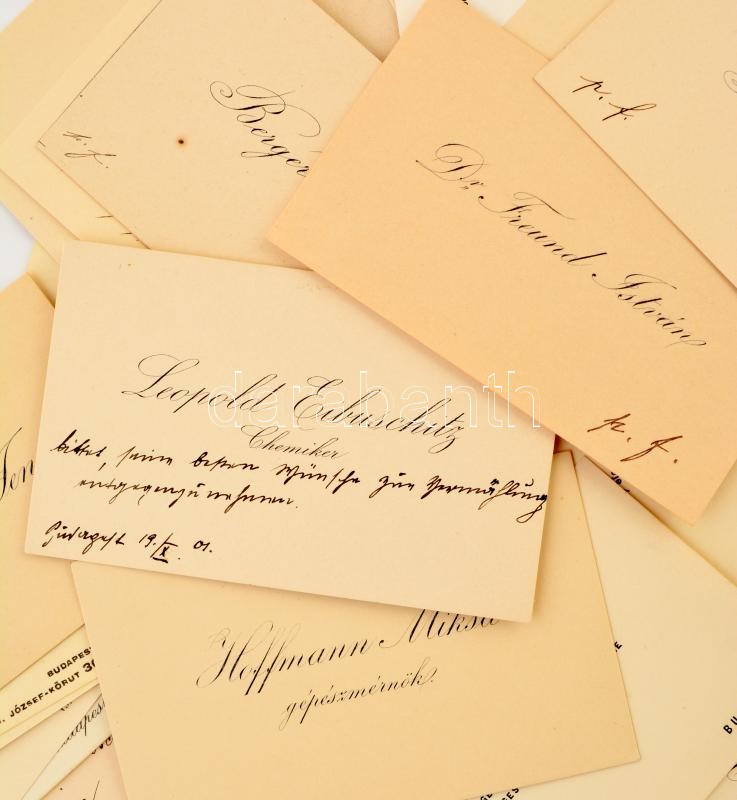 p. f.
Berger
p. f.
Dr. Freund István
p. f.
Leopold Eibuschitz
Chemiker
bittet, seine besten Wünsche zur Vermählung
entgegenzunehmen.
Budapest 19./X. 01.
darabanth
Jen
Hoffmann Miksa
gépészmérnök.
BUDAPES
JÓZSEF-KÖRUT 30